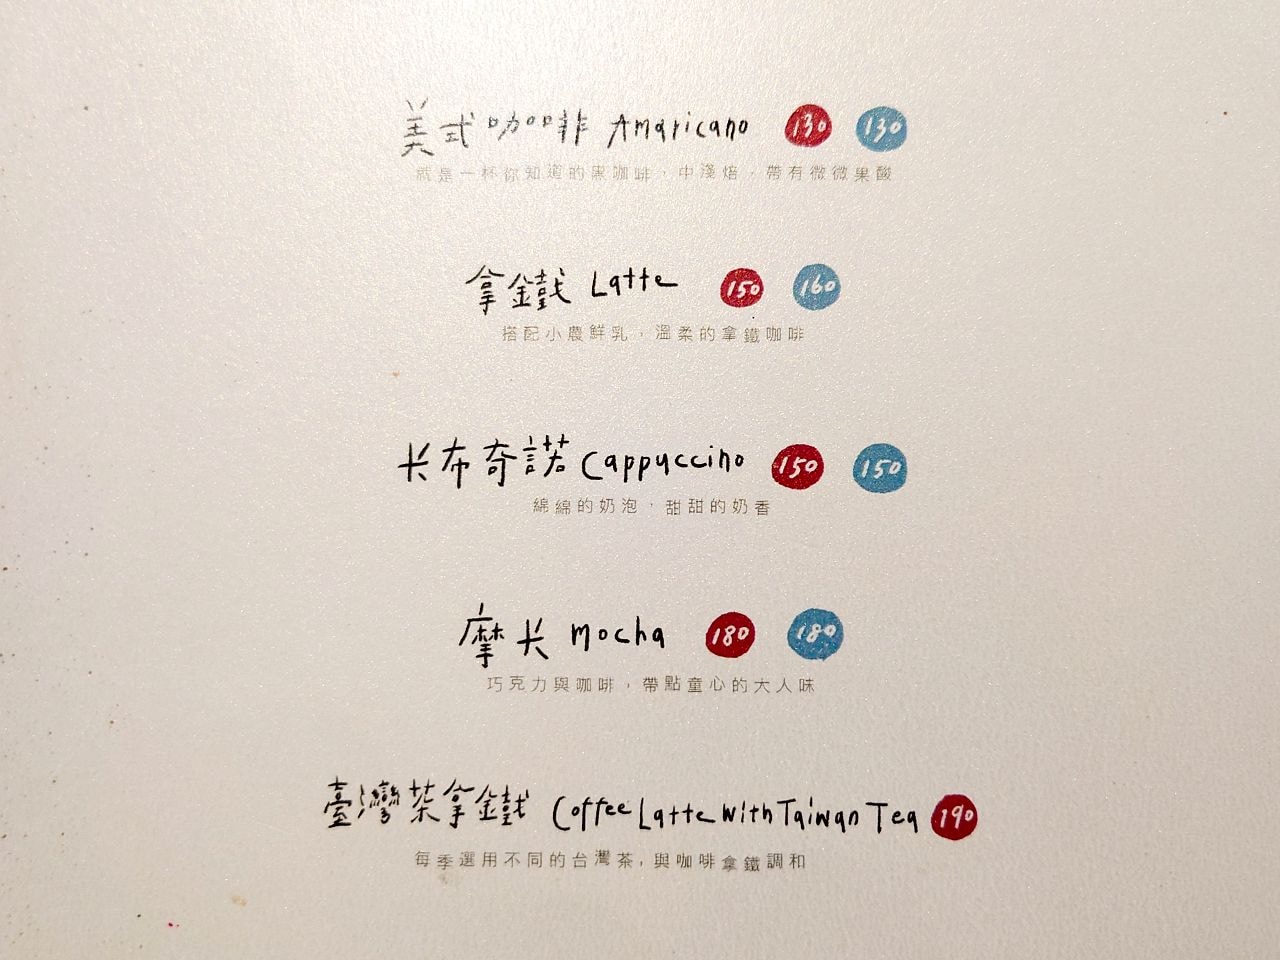 美式咖啡 Amaricano 130 130
就是一杯你知道的黑咖啡，中淺焙，帶有微微果酸
拿鐵 Latte 150 160
搭配小農鮮乳，溫柔的拿鐵咖啡
卡布奇諾 Cappuccino 150 150
綿綿的奶泡，甜甜的奶香
摩卡 mocha 180 180
巧克力與咖啡，帶點童心的大人味
臺灣茶拿鐵 Coffee Latte with Taiwan Tea 190
每季選用不同的台灣茶，與咖啡拿鐵調和